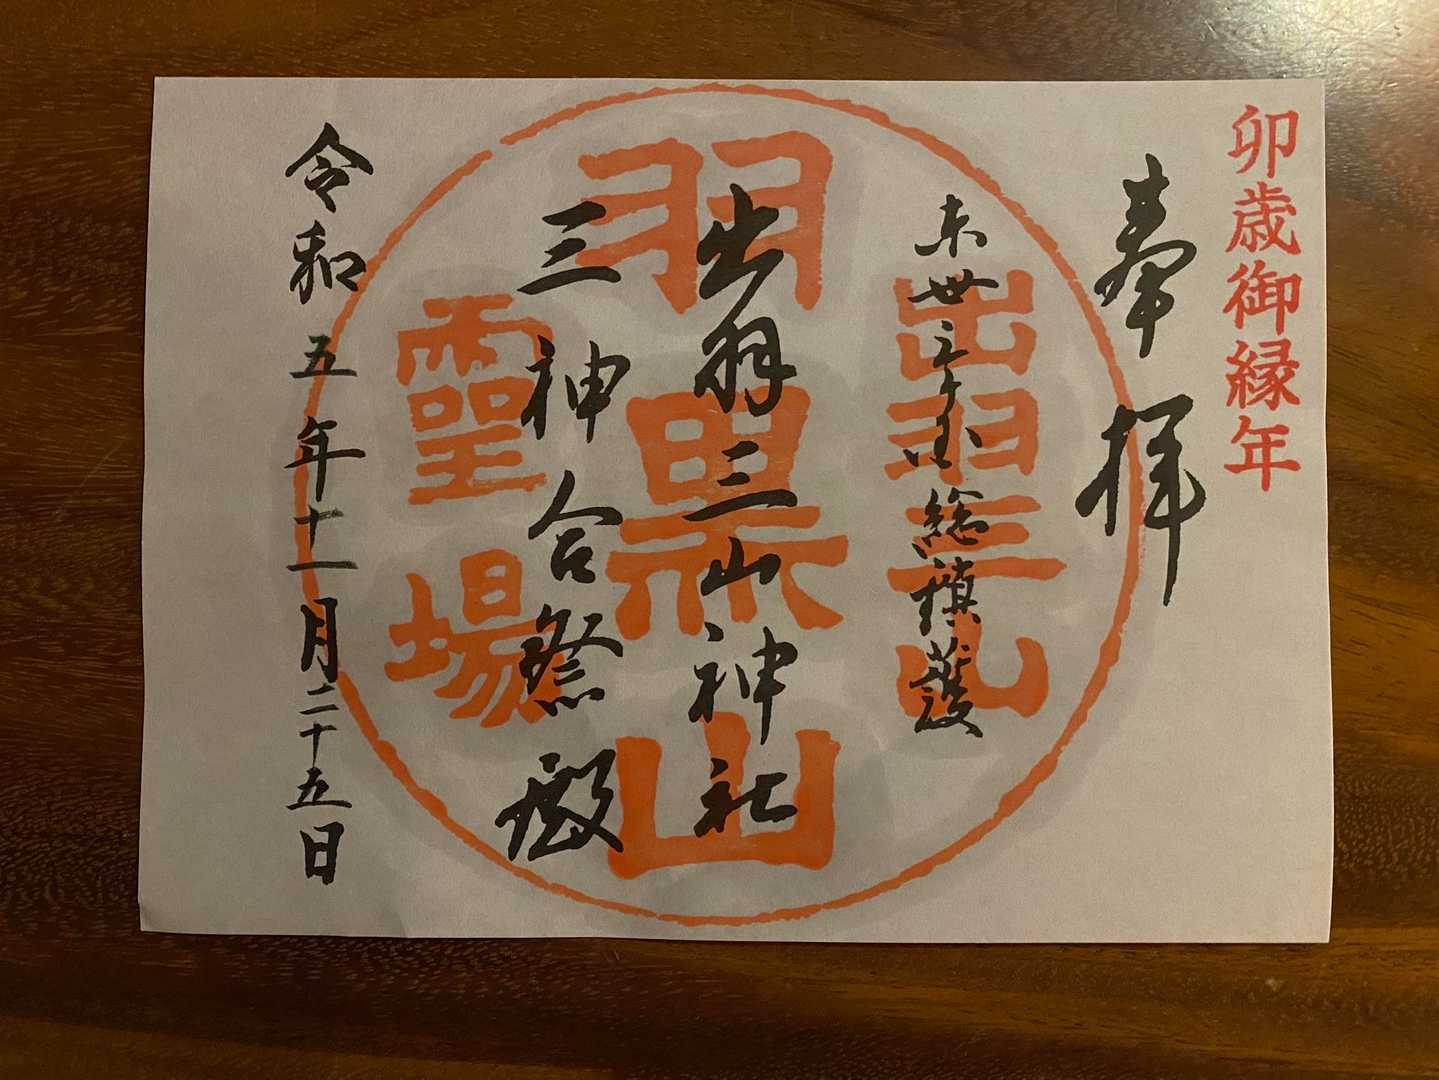 卯歳御縁年
奉拝
東卅三ヶ国総鎮護
出羽三山神社
三神合祭殿
令和五年十一月二十五日
出羽三山
羽黒山
靈場